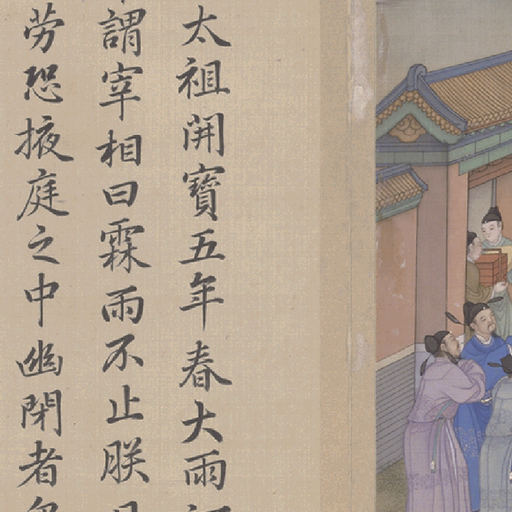 太祖開寶五年春大雨
謂宰相曰霖雨不止朕
劳恐掖庭之中幽閉者